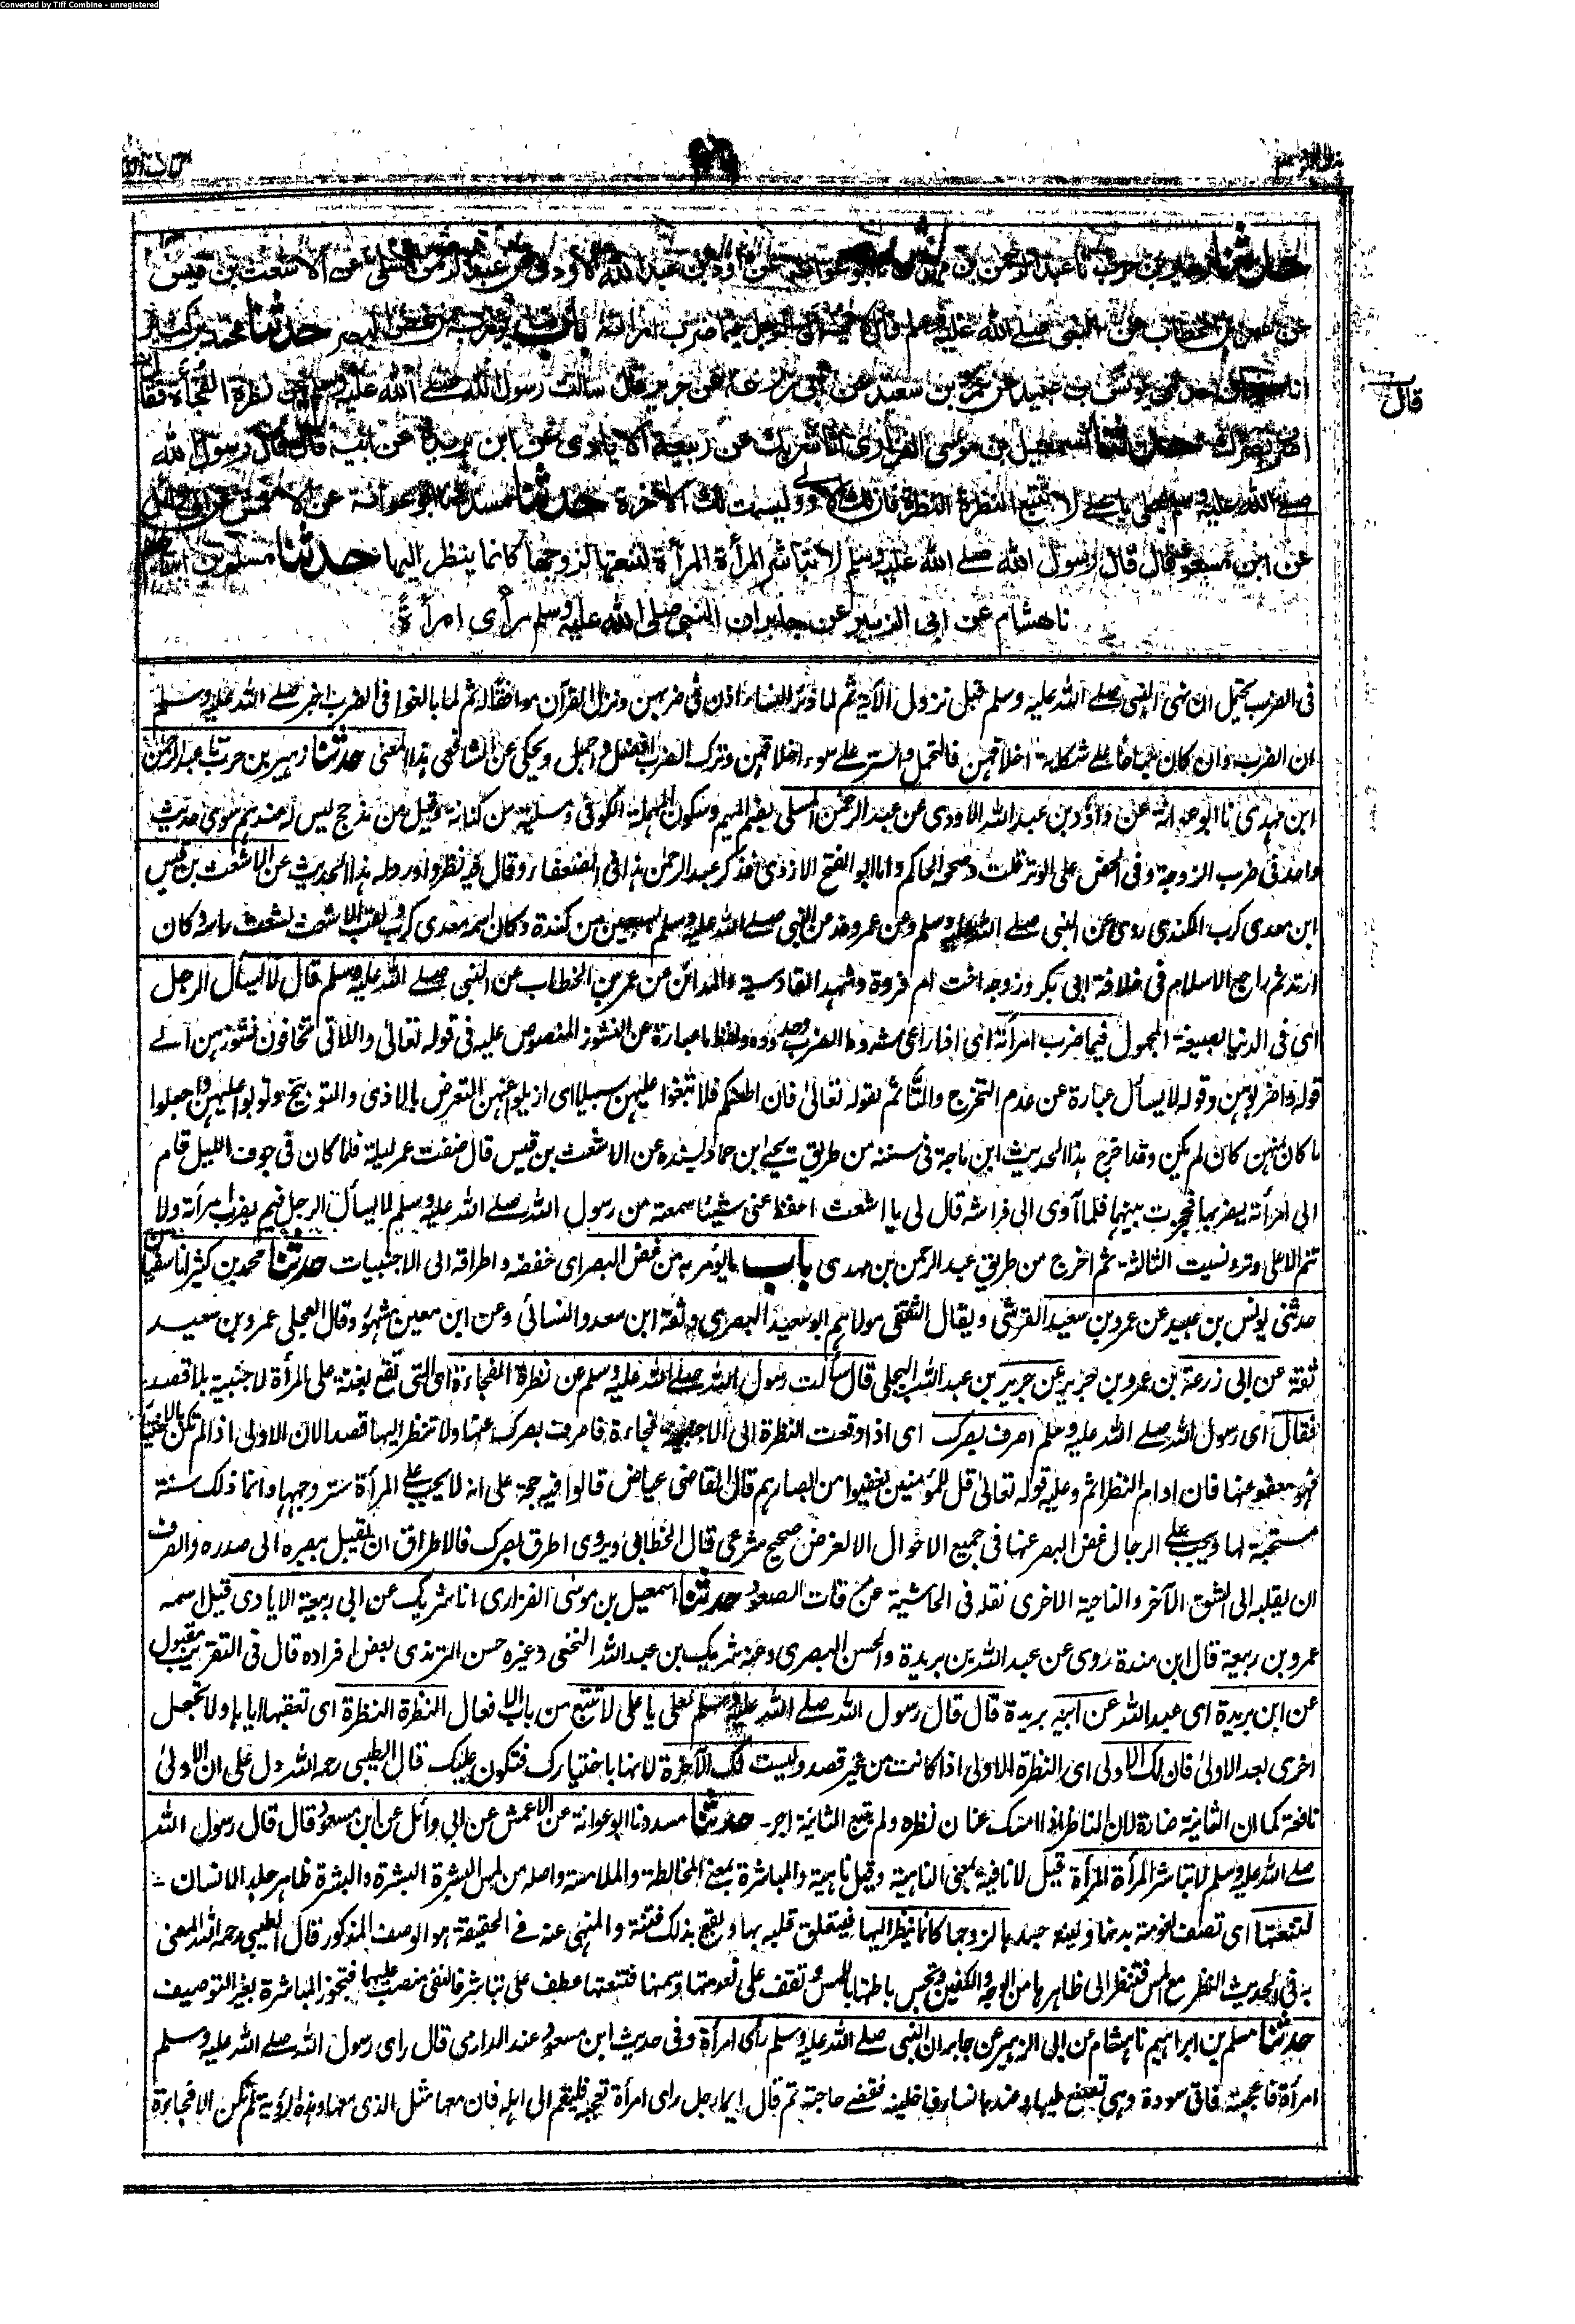 Converted by Tiff Combine - unregistered
حدثنا زهير بن حرب نا عبد الرحمن بن مهدي نا ابو عوانة عن داود بن عبد الله الاودي عن عبد الرحمن المسلي عن الاشعث بن قيس
عن عمر بن الخطاب عن النبي صلے الله عليه وسلم قال لا يسأل الرجل فيما ضرب امرأته باب ما يؤمر به من غض البصر حدثنا محمد بن كثير
انا سفيان حدثني يونس بن عبيد عن عمرو بن سعيد عن ابي زرعة عن جرير قال سألت رسول الله صلے الله عليه وسلم عن نظرة الفجأة فقال
قال
اصرف بصرك حدثنا اسمعيل بن موسى الفزاري انا شريك عن ربيعة الايادي عن ابن بريدة عن ابيه قال قال رسول الله
صلے الله عليه وسلم لعلي يا علي لا تتبع النظرة النظرة فان لك الاولى وليست لك الآخرة حدثنا مسدد نا ابو عوانة عن الاعمش عن ابي وائل
عن ابن مسعود قال قال رسول الله صلے الله عليه وسلم لا تباشر المرأة المرأة لتنعتها لزوجها كانما ينظر اليها حدثنا مسلم بن ابراهيم
نا هشام عن ابي الزبير عن جابر ان النبي صلى الله عليه وسلم رأى امرأة
في الضرب يحتمل ان نهي النبي صلے الله عليه وسلم قبل نزول الآية ثم لما ذئر النساء اذن في ضربهن ونزل القرآن موافقا له ثم لما بالغوا في الضرب اخبر صلے الله عليه وسلم
ان الضرب وان كان مباحا على شكاية اخلاقهن فالتحمل والستر على سوء اخلاقهن وترك الضرب افضل واجمل ويحكى عن الشافعي هذا المعنى حدثنا زهير بن حرب نا عبد الرحمن
ابن مهدي نا ابو عوانة عن داؤد بن عبد الله الاودي عن عبد الرحمن المسلي بضم الميم وسكون المهملة الكوفي ومسلية من كنانة وقيل من مذحج ليس له عندهم سوى حديث
واحد في ضرب الزوجة وفي الحض على الوتر قلت وصححه الحاكم واما ابو الفتح الازدي فذكر عبد الرحمن هذا في الضعفاء وقال فيه نظر واورد له هذا الحديث عن الاشعث بن قيس
ابن معدي كرب الكندي روى عن النبي صلے الله عليه وسلم وعن عمر وفد من النبي صلے الله عليه وسلم بسبعين من كندة وكان اسمه معدي كرب ولقب الاشعث لشعث رأسه وكان
ارتد ثم راجع الاسلام في خلافة ابي بكر وزوجه اخته ام فروة وشهد القادسية والمدائن عن عمر بن الخطاب عن النبي صلے الله عليه وسلم قال لا يسأل الرجل
اي في الدنيا بصيغة المجهول فيما ضرب امرأته اي اذا راعى شروط الضرب وحدوده ولفظ ما عبارة عن النشوز المنصوص عليه في قوله تعالى واللاتي تخافون نشوزهن الى
قوله واضربوهن وقوله لا يسأل عبارة عن عدم التحرج والتأثم بقوله تعالى فان اطعنكم فلا تبغوا عليهن سبيلا اي ازيلوا عنهن التعرض بالاذى والتوبيخ وتوبوا عليهن واجعلوا
ما كان منهن كان لم يكن وقد اخرج هذا الحديث ابن ماجة في سننه من طريق يحيى ابن حماد بسنده عن الاشعث بن قيس قال ضفت عمر ليلة فلما كان في جوف الليل قام
الى امرأته يضربها فحجزت بينهما فلما آوى الى فراشه قال لي يا اشعث احفظ عني شيئا سمعته من رسول الله صلے الله عليه وسلم لا يسأل الرجل فيم يضرب امرأته ولا
تنم الا على وتر ونسيت الثالثة ثم اخرج من طريق عبد الرحمن بن مهدي باب ما يؤمر به من غض البصر اي خفضه واطراقه الى الاجنبيات حدثنا محمد بن كثير انا سفيان
حدثني يونس بن عبيد عن عمرو بن سعيد القرشي ويقال الثقفي مولاهم ابو سعيد البصري وثقه ابن سعد والنسائي وعن ابن معين مشهور وقال العجلي عمرو بن سعيد
ثقة عن ابي زرعة بن عمرو بن جرير عن جرير بن عبد الله البجلي قال سألت رسول الله صلے الله عليه وسلم عن نظرة الفجاءة اي التي تقع بغتة على المرأة الاجنبية بلا قصد
فقال اي رسول الله صلے الله عليه وسلم اصرف بصرك اي اذا وقعت النظرة الى الاجنبية فجاءة فاصرف بصرك عنها ولا تنظر اليها قصدا لان الاولى اذا لم تكن بالاختيار
فهو معفو عنها فان ادام النظر اثم وعليه قوله تعالى قل للمؤمنين يغضوا من ابصارهم قال القاضي عياض قالوا فيه حجة على انه لا يجب على المرأة ستر وجهها وانما ذلك سنة
مستحبة لها ويجب على الرجال غض البصر عنها في جميع الاحوال الا لغرض صحيح شرعي قال الخطابي ويروى اطرق بصرك فالاطراق ان يقبل ببصره الى صدره والصرف
ان يقلبه الى الشق الآخر والناحية الاخرى نقله في الحاشية عن مرقات الصعود حدثنا اسمعيل بن موسى الفزاري انا شريك عن ابي ربيعة الايادي قيل اسمه
عمرو بن ربيعة قال ابن مندة روى عن عبد الله بن بريدة والحسن البصري وعنه شريك بن عبد الله النخعي وغيره حسن الترمذي بعض افراده قال في التقريب مقبول
عن ابن بريدة اي عبد الله عن ابيه بريدة قال قال رسول الله صلے الله عليه وسلم لعلي يا علي لا تتبع من باب الافعال النظرة النظرة اي تعقبها اياها ولا تجعل
اخرى بعد الاولى فان لك الاولى اي النظرة الاولى اذا كانت من غير قصد وليست لك الآخرة لانها باختيارك فتكون عليك قال الطيبي رحمه الله دل على ان الاولى
نافعة كما ان الثانية ضارة لان الناظر اذا امسك عنان نظره ولم يتبع الثانية اجر۔ حدثنا مسدد نا ابو عوانة عن الاعمش عن ابي وائل عن ابن مسعود قال قال رسول الله
صلے الله عليه وسلم لا تباشر المرأة المرأة قيل لا نافية بمعنى الناهية وقيل ناهية والمباشرة بمعنى المخالطة والملامسة واصله من لمس البشرة البشرة والبشرة ظاهر جلد الانسان
لتنعتها اي تصف نعومة بدنها ولينه جسدها لزوجها كانما ينظر اليها فيتعلق قلبه بها ويقع بذلك فتنة والمنهي عنه في الحقيقة هو الوصف المذكور قال الطيبي رحمه الله المعنى
به في الحديث النظر مع المس فتنظر الى ظاهرها من الوجه والكفين وتجس باطنها باللمس وتقف على نعومتها وسمنها فتنعتها عطف على تباشر فالنفي منصب عليهما فتجوز المباشرة بغير التوصيف
حدثنا مسلم بن ابراهيم نا هشام عن ابي الزبير عن جابر ان النبي صلے الله عليه وسلم رأى امرأة وفي حديث ابن مسعود عند الدارمي قال رأى رسول الله صلے الله عليه وسلم
امرأة فاعجبته فاتى سودة وهي تصنع طيبا وعندها نساء فاخلينه فقضى حاجته ثم قال ايما رجل رأى امرأة تعجبه فليقم الى اهله فان معها مثل الذي معها وهذه الرؤية لم تكن الا فجاءة